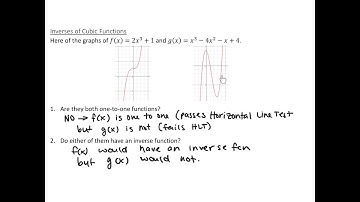 Inverses of Cubic Functions
Here of the graphs of f(x) = 2x³ + 1 and g(x) = x³ − 4x² − x + 4.
1. Are they both one-to-one functions?
NO → f(x) is one to one (passes Horizontal Line Test
but g(x) is not (fails HLT)
2. Do either of them have an inverse function?
f(x) would have an inverse fcn
but g(x) would not.